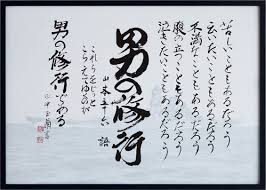 苦しいこともあるだろう
云いたいこともあるだろう
不満なこともあるだろう
腹の立つこともあるだろう
泣きたいこともあるだろう
男の修行
山本五十六 語
これらをじっと
こらえてゆくのが
男の修行である